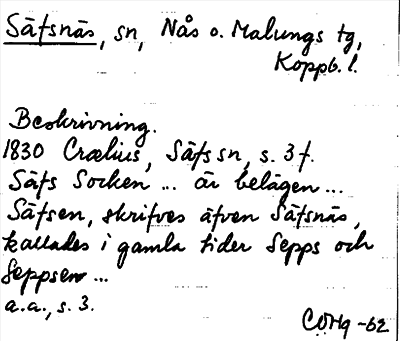 Säfsnäs, sn, Nås o. Malungs tg,
Koppb. l.
Beskrivning.
1830 Crælius, Säfs sn, s. 3 f.
Säfs Socken ... är belägen ...
Säfsen, skrifves äfven Säfsnäs,
kallades i gamla tider Sepps och
Seppsen ...
a.a., s. 3.
CÖHg -62